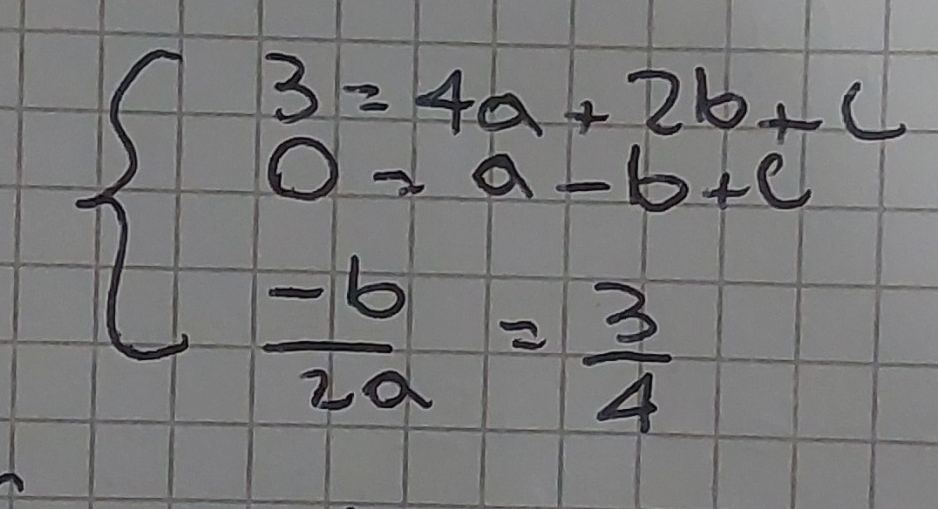 3 = 4a + 2b + c
0 = a - b + c
-b/2a = 3/4